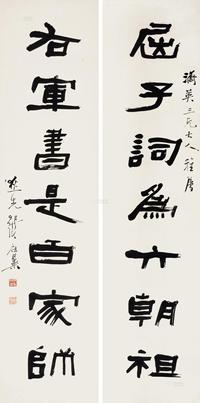 濟英三兄大人雅屬
屈子詞爲六朝祖
右軍書是百家師
逖先張祖翼